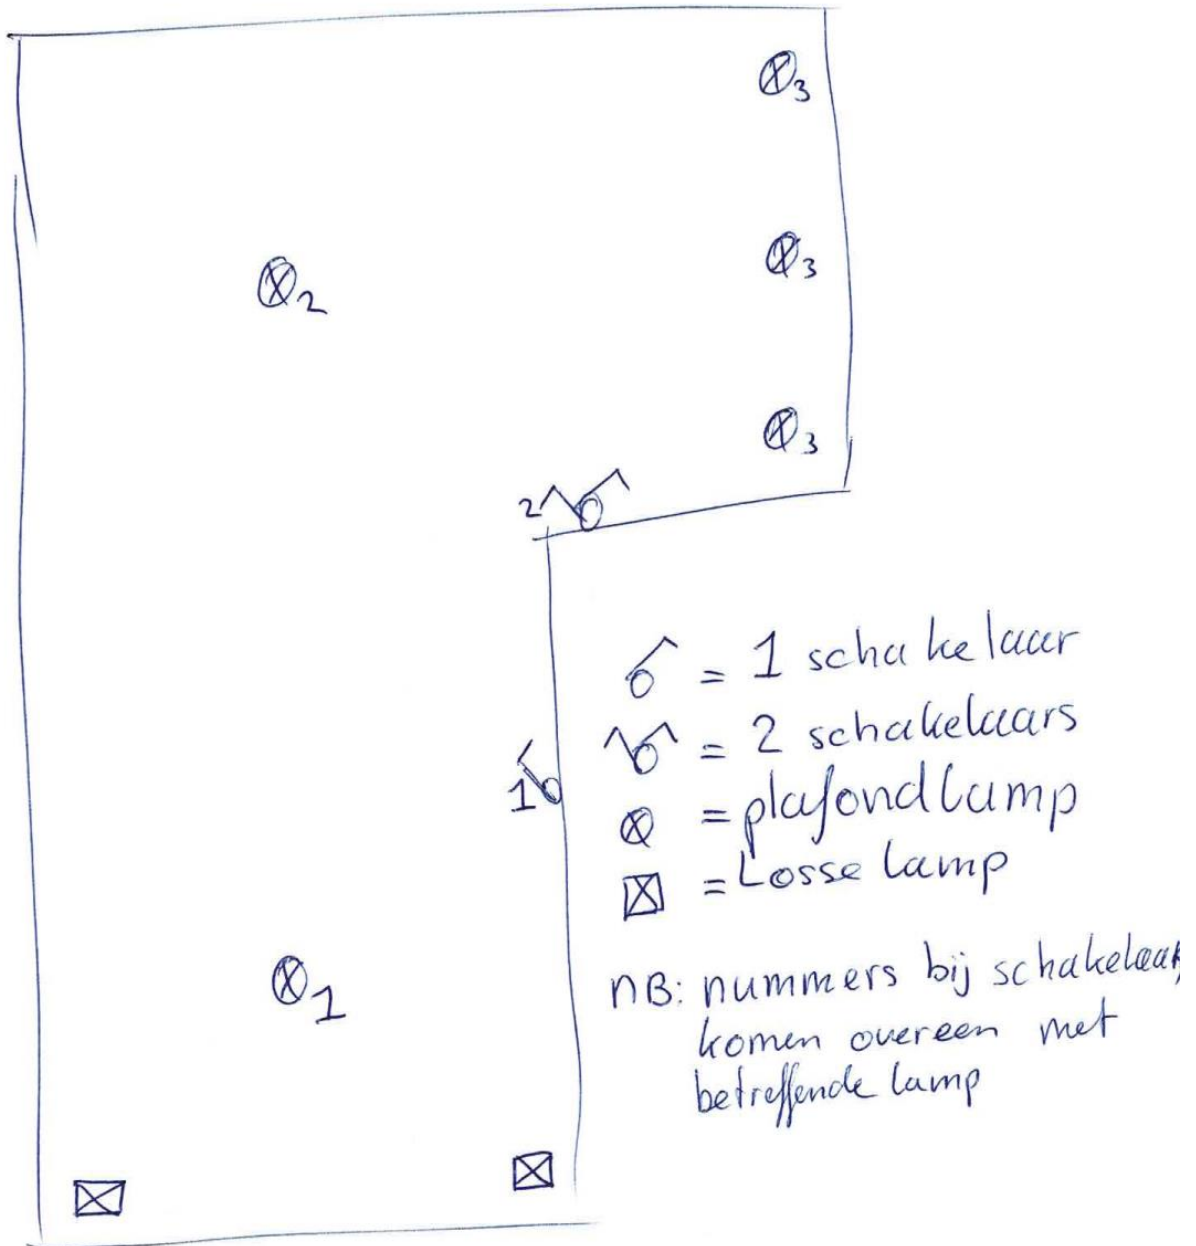 3
3
2
3
2
1
1
= 1 schakelaar
= 2 schakelaars
= plafondlamp
= Losse lamp
NB: nummers bij schakelaar
komen overeen met
betreffende lamp